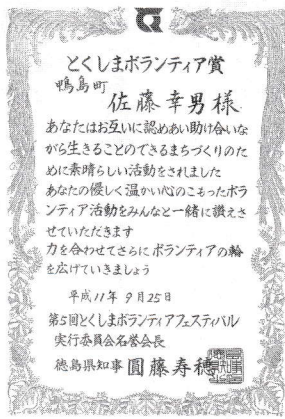 とくしまボランティア賞
鴨島町
佐藤幸男様
あなたはお互いに認めあい助け合いな
がら生きることのできるまちづくりのた
めに素晴らしい活動をされました
あなたの優しく温かい心のこもったボラ
ンティア活動をみんなと一緒に讃えさ
せていただきます
力を合わせてさらにボランティアの輪
を広げていきましょう
平成11年9月25日
第5回とくしまボランティアフェスティバル
実行委員会名誉会長
徳島県知事 圓藤寿穂